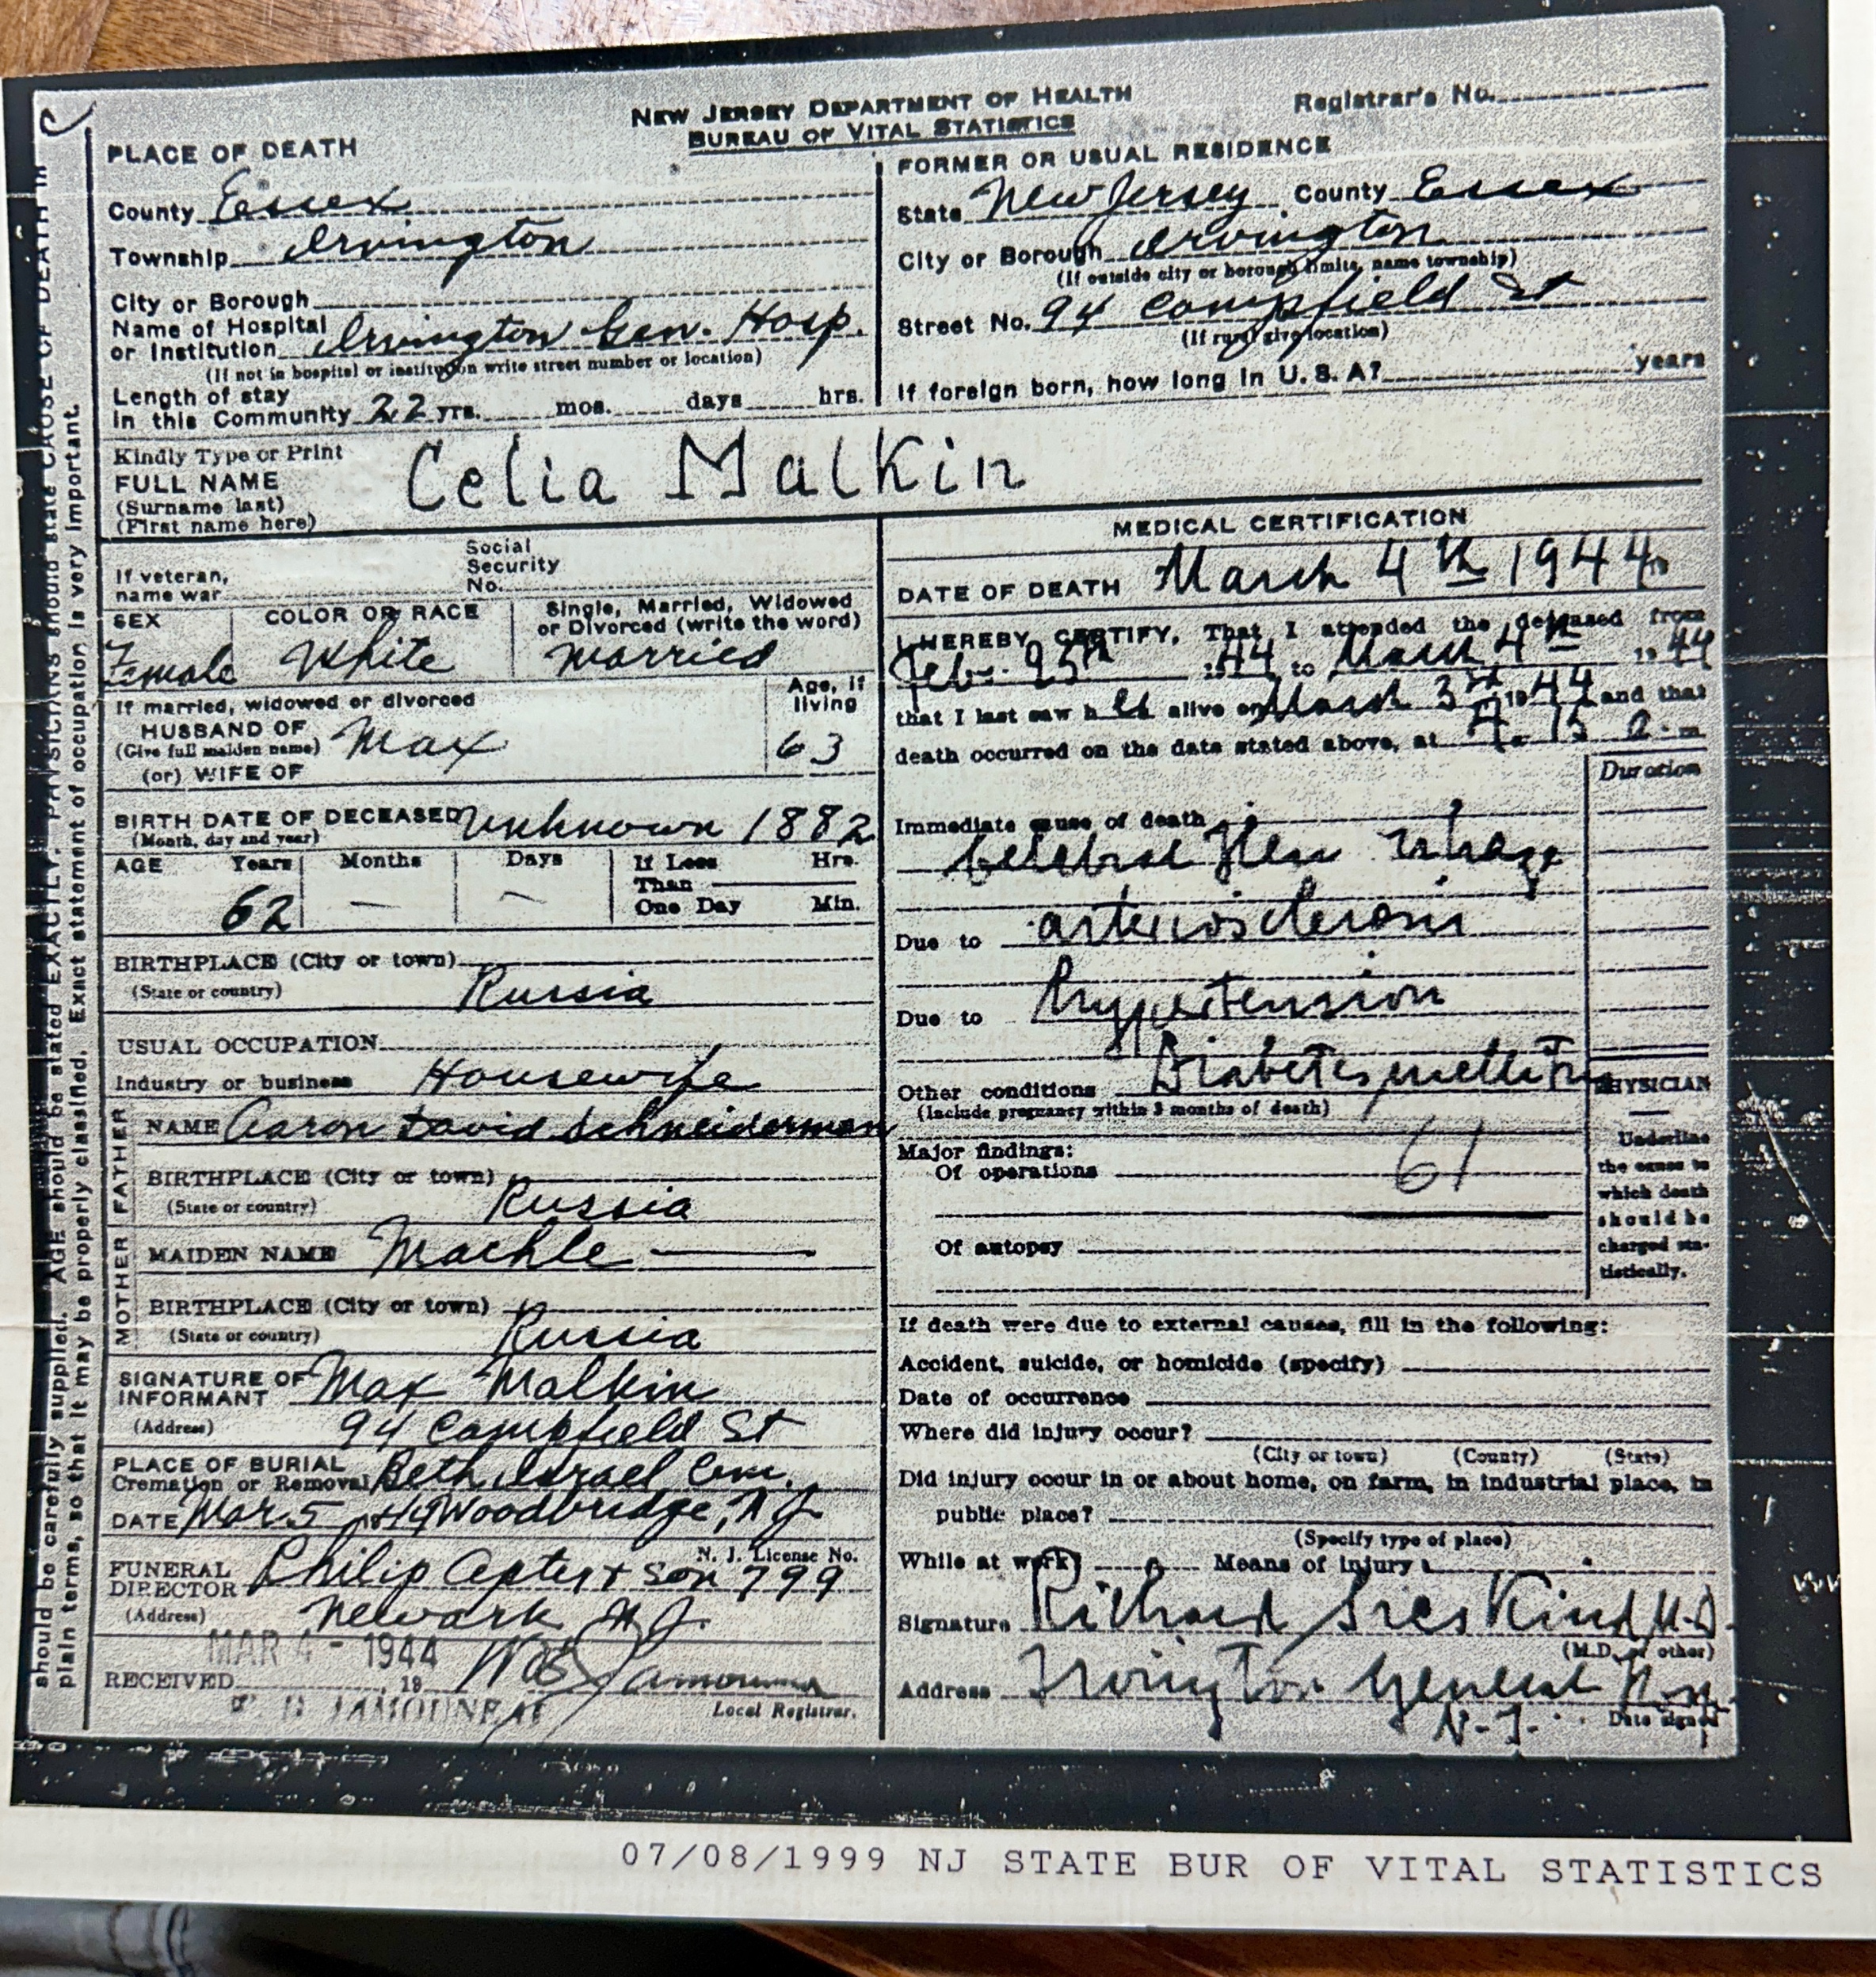 NEW JERSEY DEPARTMENT OF HEALTH
BUREAU OF VITAL STATISTICS
Registrar's No.
PLACE OF DEATH
County Essex
Township Irvington
City or Borough
Name of Hospital
or Institution Irvington Gen. Hosp.
(If not in hospital or institution write street number or location)
Length of stay
in this Community 22 yrs. mos. days hrs.
FORMER OR USUAL RESIDENCE
State New Jersey County Essex
City or Borough Irvington
(If outside city or borough limits, name township)
Street No. 94 Campfield St
(If rural give location)
If foreign born, how long in U. S. A? years
Kindly Type or Print
FULL NAME Celia Malkin
(Surname last)
(First name here)
If veteran,
name war
Social
Security
No.
SEX
Female
COLOR OR RACE
White
Single, Married, Widowed
or Divorced (write the word)
Married
If married, widowed or divorced
HUSBAND OF Max
(Give full maiden name)
(or) WIFE OF
Age, if
living
63
BIRTH DATE OF DECEASED Unknown 1882
(Month, day and year)
AGE Years Months Days If Less Hrs.
Than
One Day Min.
62 — —
BIRTHPLACE (City or town)
(State or country) Russia
USUAL OCCUPATION
Industry or business Housewife
FATHER
NAME Aaron David Schneiderman
BIRTHPLACE (City or town)
(State or country) Russia
MOTHER
MAIDEN NAME Machle —
BIRTHPLACE (City or town)
(State or country) Russia
SIGNATURE OF
INFORMANT Max Malkin
(Address) 94 Campfield St
PLACE OF BURIAL
Cremation or Removal Beth Israel Cem.
DATE Mar. 5 1944 Woodbridge, N J
FUNERAL
DIRECTOR Philip Apter + Son 799
N. J. License No.
(Address) Newark N. J.
MAR 4 - 1944
RECEIVED , 19
Local Registrar.
JAMOUNEAU
MEDICAL CERTIFICATION
DATE OF DEATH March 4th 1944
I HEREBY CERTIFY, That I attended the deceased from
Feb. 25th 1944, to March 4th 1944
that I last saw her alive on March 3rd 1944 and that
death occurred on the date stated above, at 4.15 a. m
Duration
Immediate cause of death
Cerebral Hemorrhage
Due to arteriosclerosis
Due to hypertension
Other conditions Diabetes mellitus
(Include pregnancy within 3 months of death)
PHYSICIAN
Underline
the cause to
which death
should be
charged sta-
tistically.
Major findings:
Of operations 61
Of autopsy
If death were due to external causes, fill in the following:
Accident, suicide, or homicide (specify)
Date of occurrence
Where did injury occur?
(City or town) (County) (State)
Did injury occur in or about home, on farm, in industrial place, in
public place?
(Specify type of place)
While at work? Means of injury
Signature Richard Sieskind M.D.
(M.D. or other)
Address Irvington General Hosp.
N.J. Date signed
should be carefully supplied. AGE should be stated EXACTLY. PHYSICIANS should state CAUSE OF DEATH in
plain terms, so that it may be properly classified. Exact statement of occupation is very important.
07/08/1999 NJ STATE BUR OF VITAL STATISTICS